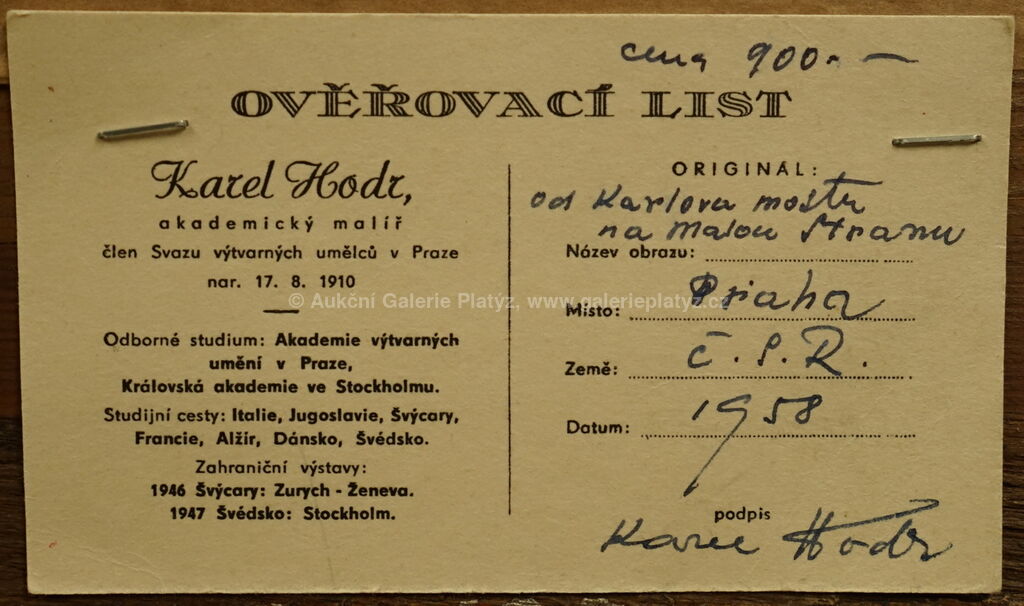 cena 900.-
OVĚŘOVACÍ LIST
Karel Hodr,
akademický malíř
člen Svazu výtvarných umělců v Praze
nar. 17. 8. 1910
Odborné studium: Akademie výtvarných
umění v Praze,
Královská akademie ve Stockholmu.
Studijní cesty: Italie, Jugoslavie, Švýcary,
Francie, Alžír, Dánsko, Švédsko.
Zahraniční výstavy:
1946 Švýcary: Zurych - Ženeva.
1947 Švédsko: Stockholm.
ORIGINÁL:
od Karlova mostu
na Malou Stranu
Název obrazu:
Místo: Praha
Země: Č.S.R.
Datum: 1958
podpis
Karel Hodr
© Aukční Galerie Platýz, www.galerieplatyz.cz